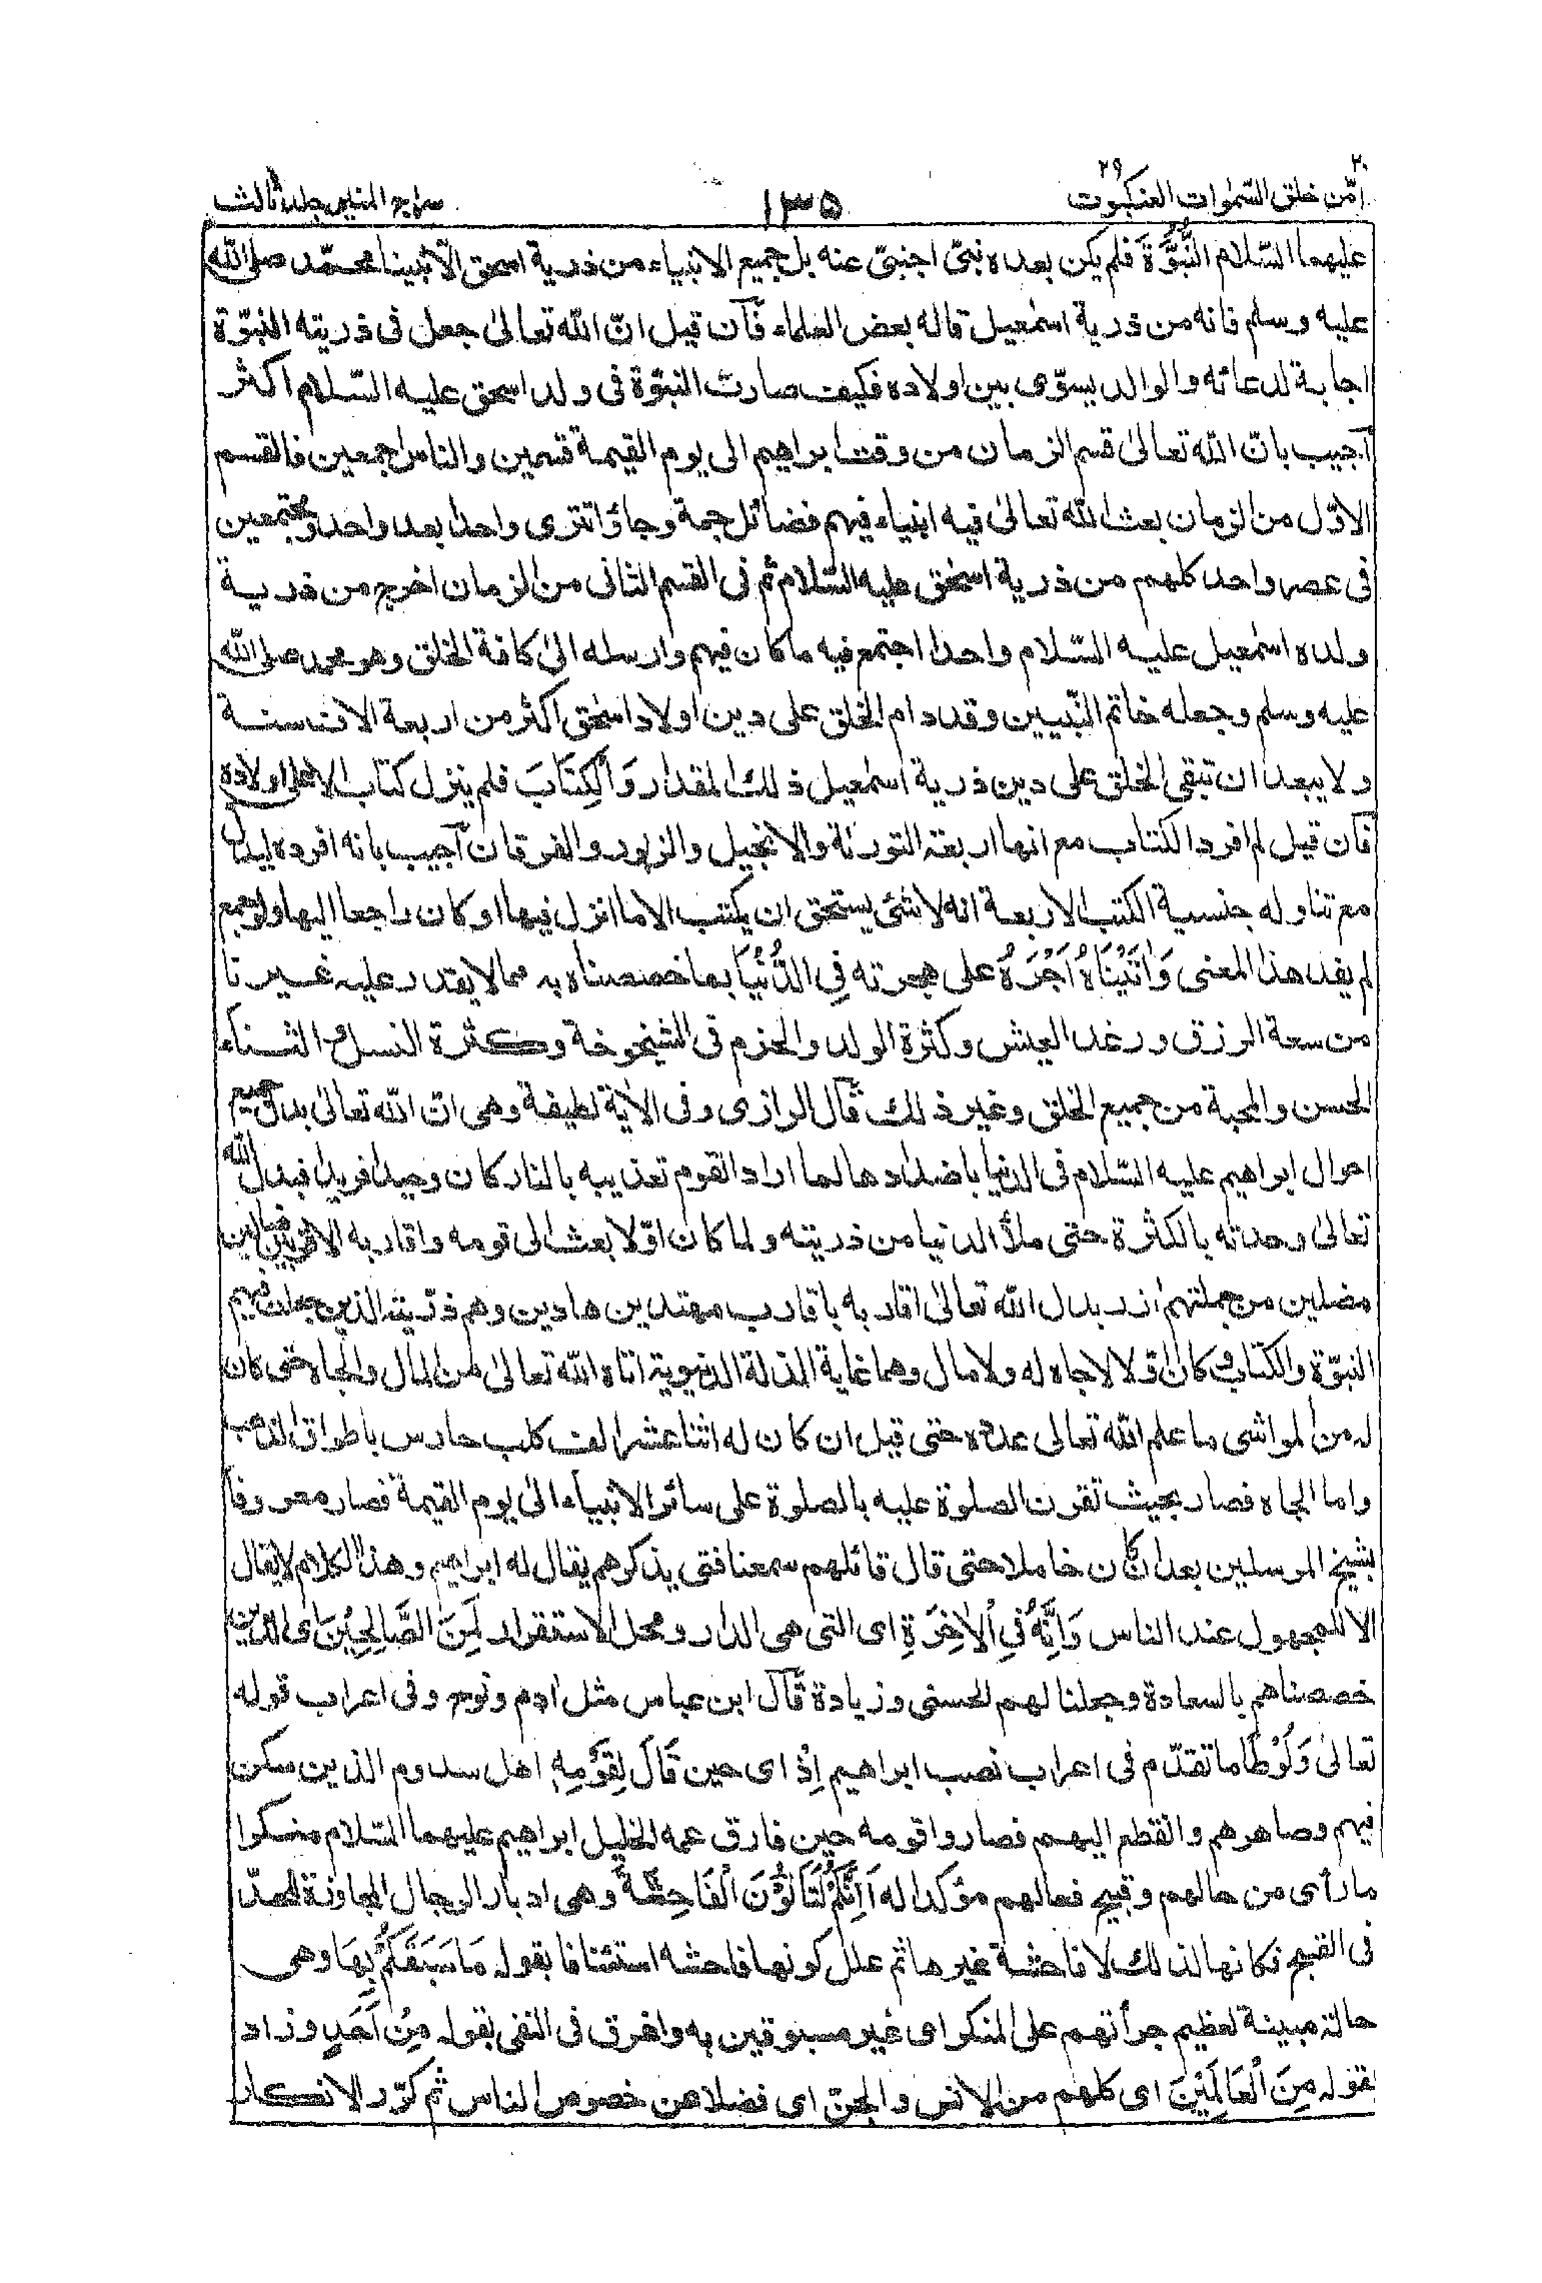 ٢٠ ٢٩
امّن خلق السّمٰوات العنكبوت
١٣٥
سراج المنير جلد ثالث
عليهما السّلام النُّبُوَّةَ فلم يكن بعده نبيّ اجنبيّ عنه بل جميع الانبياء من ذرية اسحق الّا نبينا محمّد صلى الله
عليه وسلم فانه من ذرية اسمٰعيل قاله بعض العلماء فآن قيل انّ الله تعالىٰ جعل فى ذريته النبوّة
اجابة لدعائه والوالد يسوّى بين اولاده فكيف صارت النبوّة فى ولد اسحق عليه السّلام اكثر
آجيب بانّ الله تعالىٰ قسم الزمان من وقت ابراهيم الى يوم القيمة قسمين والناس اجمعين فالقسم
الاوّل من الزمان بعث الله تعالىٰ فيه انبياء فيهم فضائل جمة وجاؤا تترى واحدا بعد واحد ومجتمعين
فى عصر واحد كلهم من ذرية اسحٰق عليه السّلام ثم فى القسم الثانى من الزمان اخرج من ذرية
ولده اسمٰعيل عليه السّلام واحدا اجتمع فيه ما كان فيهم وارسله الىٰ كافة الخلق وهو محمد صلى الله
عليه وسلم وجعله خاتم النّبيين وقد دام الخلق على دين اولاد اسحٰق اكثر من اربعة الاف سنة
ولا يبعد ان تبقى الخلق على دين ذرية اسمٰعيل ذلك المقدار وَالْكِتَابَ فلم ينزل كتاب الا على اولاده
فآن قيل لم افرد الكتاب مع انها اربعة التورٰة والانجيل والزبور والفرقان آجيب بانه افرده ليدل
مع تناوله جنسية الكتب الاربعة انه لا شئ يستحق ان يكتب الا ما انزل فيها او كان راجعا اليها ولو جمع
لم يفد هذا المعنى وَاٰتَيْنَاهُ اَجْرَهٗ على هجرته فِى الدُّنْيَا بما خصصناه به مما لا يقدر عليه غيرنا
من سعة الرزق ورغد العيش وكثرة الولد والحزم فى الشيخوخة وكثرة النسل والثناء
الحسن والمحبة من جميع الخلق وغير ذلك قآل الرازى وفى الاٰية لطيفة وهى انّ الله تعالىٰ بدل جميع
احوال ابراهيم عليه السّلام فى الدنيا باضدادها لما اراد القوم تعذيبه بالنار كان وحيدا فريدا فبدل الله
تعالىٰ وحدته بالكثرة حتى ملأ الدنيا من ذريته ولما كان اوّلا بعث الى قومه واقاربه الاقربين ضالين
مضلين من جملتهم ازر بدل الله تعالىٰ اقاربه باقارب مهتدين هادين وهم ذرّيته الذين جعلت فيهم
النبوّة والكتاب وكان اوّلا لا جاه له ولا مال وهما غاية المذلة الدنيوية اتاه الله تعالىٰ من المال والجاه حتى كان
له من المواشى ما علم الله تعالى عدده حتى قيل ان كان له اثنا عشر الف كلب حارس باطواق الذهب
واما الجاه فصار بحيث تقرن الصلوة عليه بالصلوة على سائر الانبياء الىٰ يوم القيمة فصار معروفا
بشيخ المرسلين بعد ان كان خاملا حتى قال قائلهم سمعنا فتى يذكرهم يقال له ابراهيم وهذا الكلام لا يقال
الا للمجهول عند الناس وَاِنَّهٗ فِى الْاٰخِرَةِ اى التى هى الدار ومحل الاستقرار لَمِنَ الصَّالِحِيْنَ اى الذين
خصصناهم بالسعادة وجعلنا لهم الحسنى وزيادة قآل ابن عباس مثل ادم ونوح وفى اعراب قوله
تعالىٰ وَلُوْطًا ما تقدّم فى اعراب نصب ابراهيم اِذْ اى حين قَالَ لِقَوْمِهٖ اهل سدوم الذين سكن
فيهم وصاهرهم وانقطع اليهم فصاروا قومه حين فارق عمه الخليل ابراهيم عليهما السّلام منكرا
ما رأى من حالهم وقبيح فعالهم مؤكدا له اَاِنَّكُمْ لَتَأْتُوْنَ الْفَاحِشَةَ وهى ادبار الرجال المجاوزة للحدّ
فى القبح فكانها لذلك لا فاحشة غيرها ثم علل كونها فاحشه استئنافا بقوله مَا سَبَقَكُمْ بِهَا وهى
حالة مبينة لعظيم جرأتهم على المنكر اى غير مسبوقين به واغرق فى النفى بقوله مِنْ اَحَدٍ وزاد
بقوله مِنَ الْعَالَمِيْنَ اى كلهم من الانس والجنّ اى فضلا عن خصوص الناس ثم كرّر الانكار